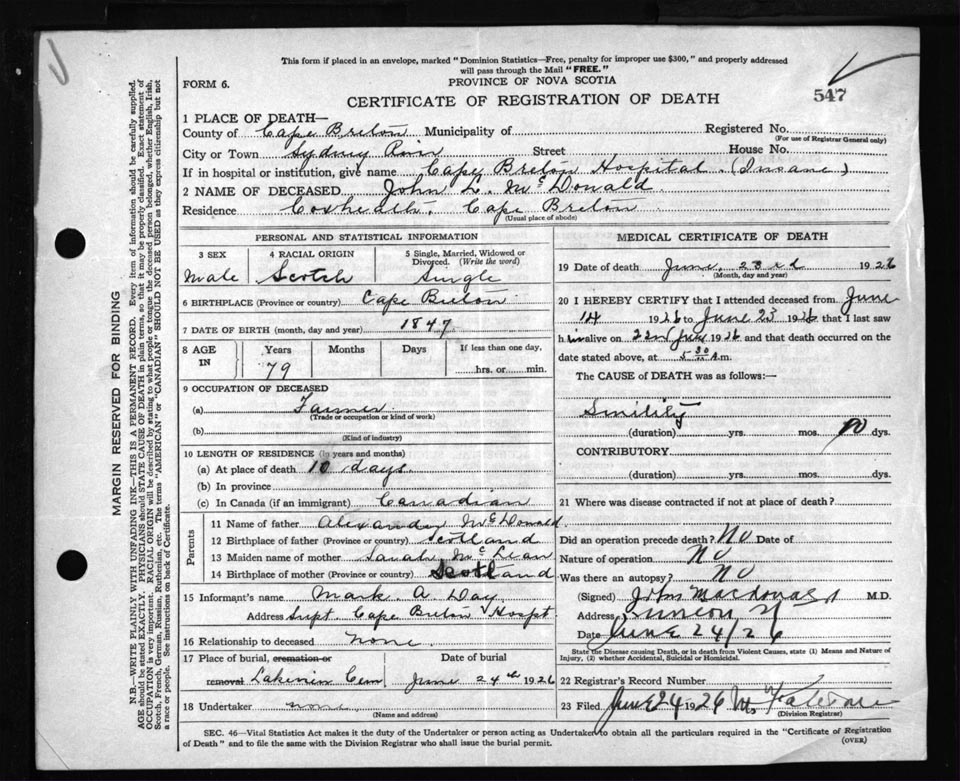 This form if placed in an envelope, marked "Dominion Statistics—Free, penalty for improper use $300," and properly addressed
will pass through the Mail "FREE."
FORM 6.
PROVINCE OF NOVA SCOTIA
547
CERTIFICATE OF REGISTRATION OF DEATH
1 PLACE OF DEATH—
County of Cape Breton Municipality of Registered No.
(For use of Registrar General only)
City or Town Sydney River Street House No.
If in hospital or institution, give name Cape Breton Hospital. (Insane)
2 NAME OF DECEASED John L. McDonald
Residence Coxheath, Cape Breton
(Usual place of abode)
PERSONAL AND STATISTICAL INFORMATION
3 SEX 4 RACIAL ORIGIN 5 Single, Married, Widowed or Divorced. (Write the word)
Male Scotch Single
6 BIRTHPLACE (Province or country) Cape Breton
7 DATE OF BIRTH (month, day and year) 1847
8 AGE IN Years Months Days If less than one day,
79 hrs. or min.
9 OCCUPATION OF DECEASED
(a) Farmer
(Trade or occupation or kind of work)
(b)
(Kind of industry)
10 LENGTH OF RESIDENCE (in years and months)
(a) At place of death 10 days.
(b) In province
(c) In Canada (if an immigrant) Canadian
Parents
11 Name of father Alexander McDonald.
12 Birthplace of father (Province or country) Scotland
13 Maiden name of mother Sarah McLean
14 Birthplace of mother (Province or country) Scotland
15 Informant's name Mark A. Day
Address Supt Cape Breton Hospt.
16 Relationship to deceased none
17 Place of burial, cremation or Date of burial
removal Cem June 24th 1926
18 Undertaker none
(Name and address)
MEDICAL CERTIFICATE OF DEATH
19 Date of death June, 23rd 1926
(Month, day and year)
20 I HEREBY CERTIFY that I attended deceased from June
14 1926 to June 23 1926 that I last saw
him alive on 22nd June 1926 and that death occurred on
date stated above, at 5 30 A.m.
The CAUSE of DEATH was as follows:—
Senility
(duration) yrs. mos. 10 dys.
CONTRIBUTORY
(duration) yrs. mos. dys.
21 Where was disease contracted if not at place of death?
Did an operation precede death? No Date of
Nature of operation No
Was there an autopsy? No
(Signed) John Macdonald M.D.
Address
Date June 24/26
State the Disease causing Death, or in death from Violent Causes, state (1) Means and Nature of
Injury, (2) whether Accidental, Suicidal or Homicidal.
22 Registrar's Record Number
23 Filed June 24 1926
(Division Registrar)
SEC. 46—Vital Statistics Act makes it the duty of the Undertaker or person acting as Undertaker to obtain all the particulars required in the "Certificate of Registration
of Death" and to file the same with the Division Registrar who shall issue the burial permit. (OVER)
MARGIN RESERVED FOR BINDING
N.B.—WRITE PLAINLY WITH UNFADING INK—THIS IS A PERMANENT RECORD. Every item of information should be carefully supplied.
AGE should be stated EXACTLY. PHYSICIANS should STATE CAUSE OF DEATH in plain terms, so that it may be properly classified. Exact statement of
OCCUPATION is very important. RACIAL ORIGIN will be described by stating to what people or tongue the deceased person belonged, whether English, Irish,
Scotch, French, German, Russian, Ruthenian, etc. The terms "AMERICAN" or "CANADIAN" SHOULD NOT BE USED as they express citizenship but not
a race or people. See instructions on back of Certificate.